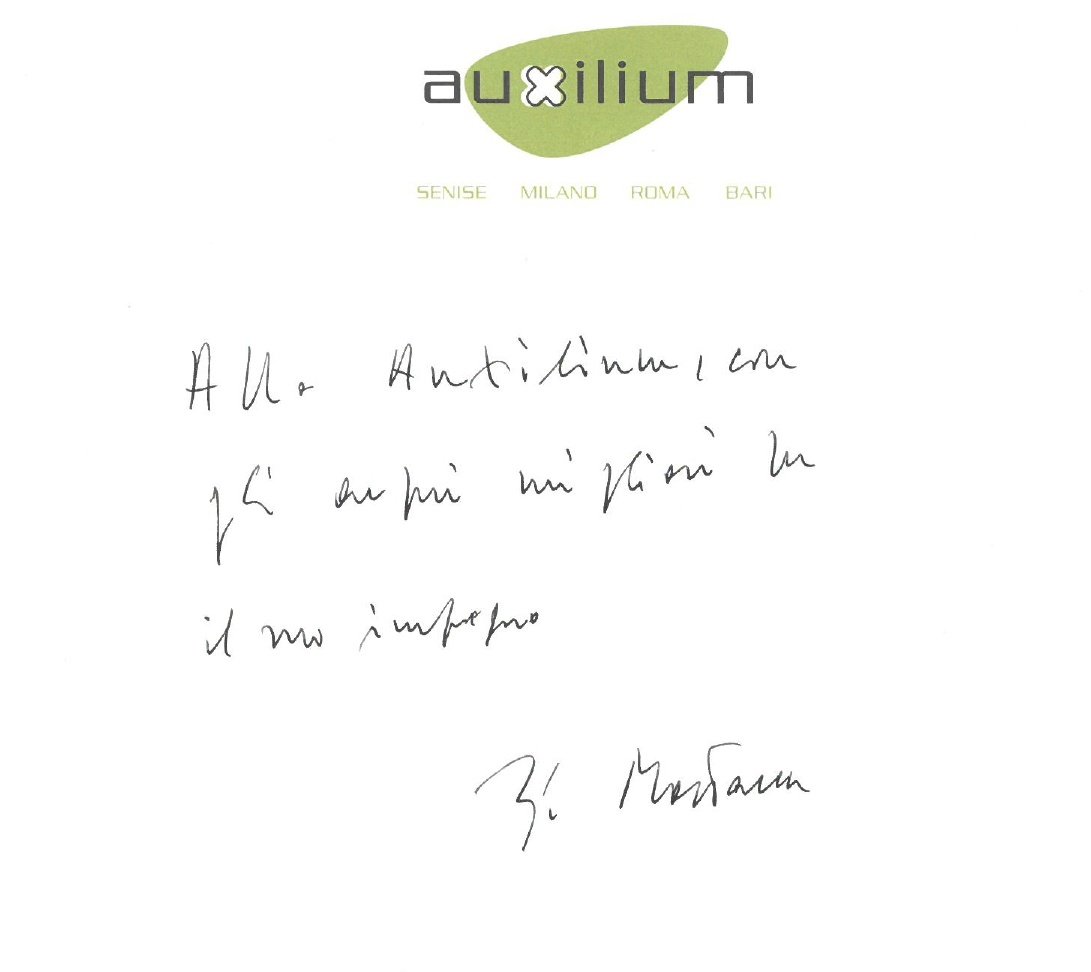 auxilium
SENISE MILANO ROMA BARI
Alla Auxilium, con
gli auspici migliori per
il suo impegno